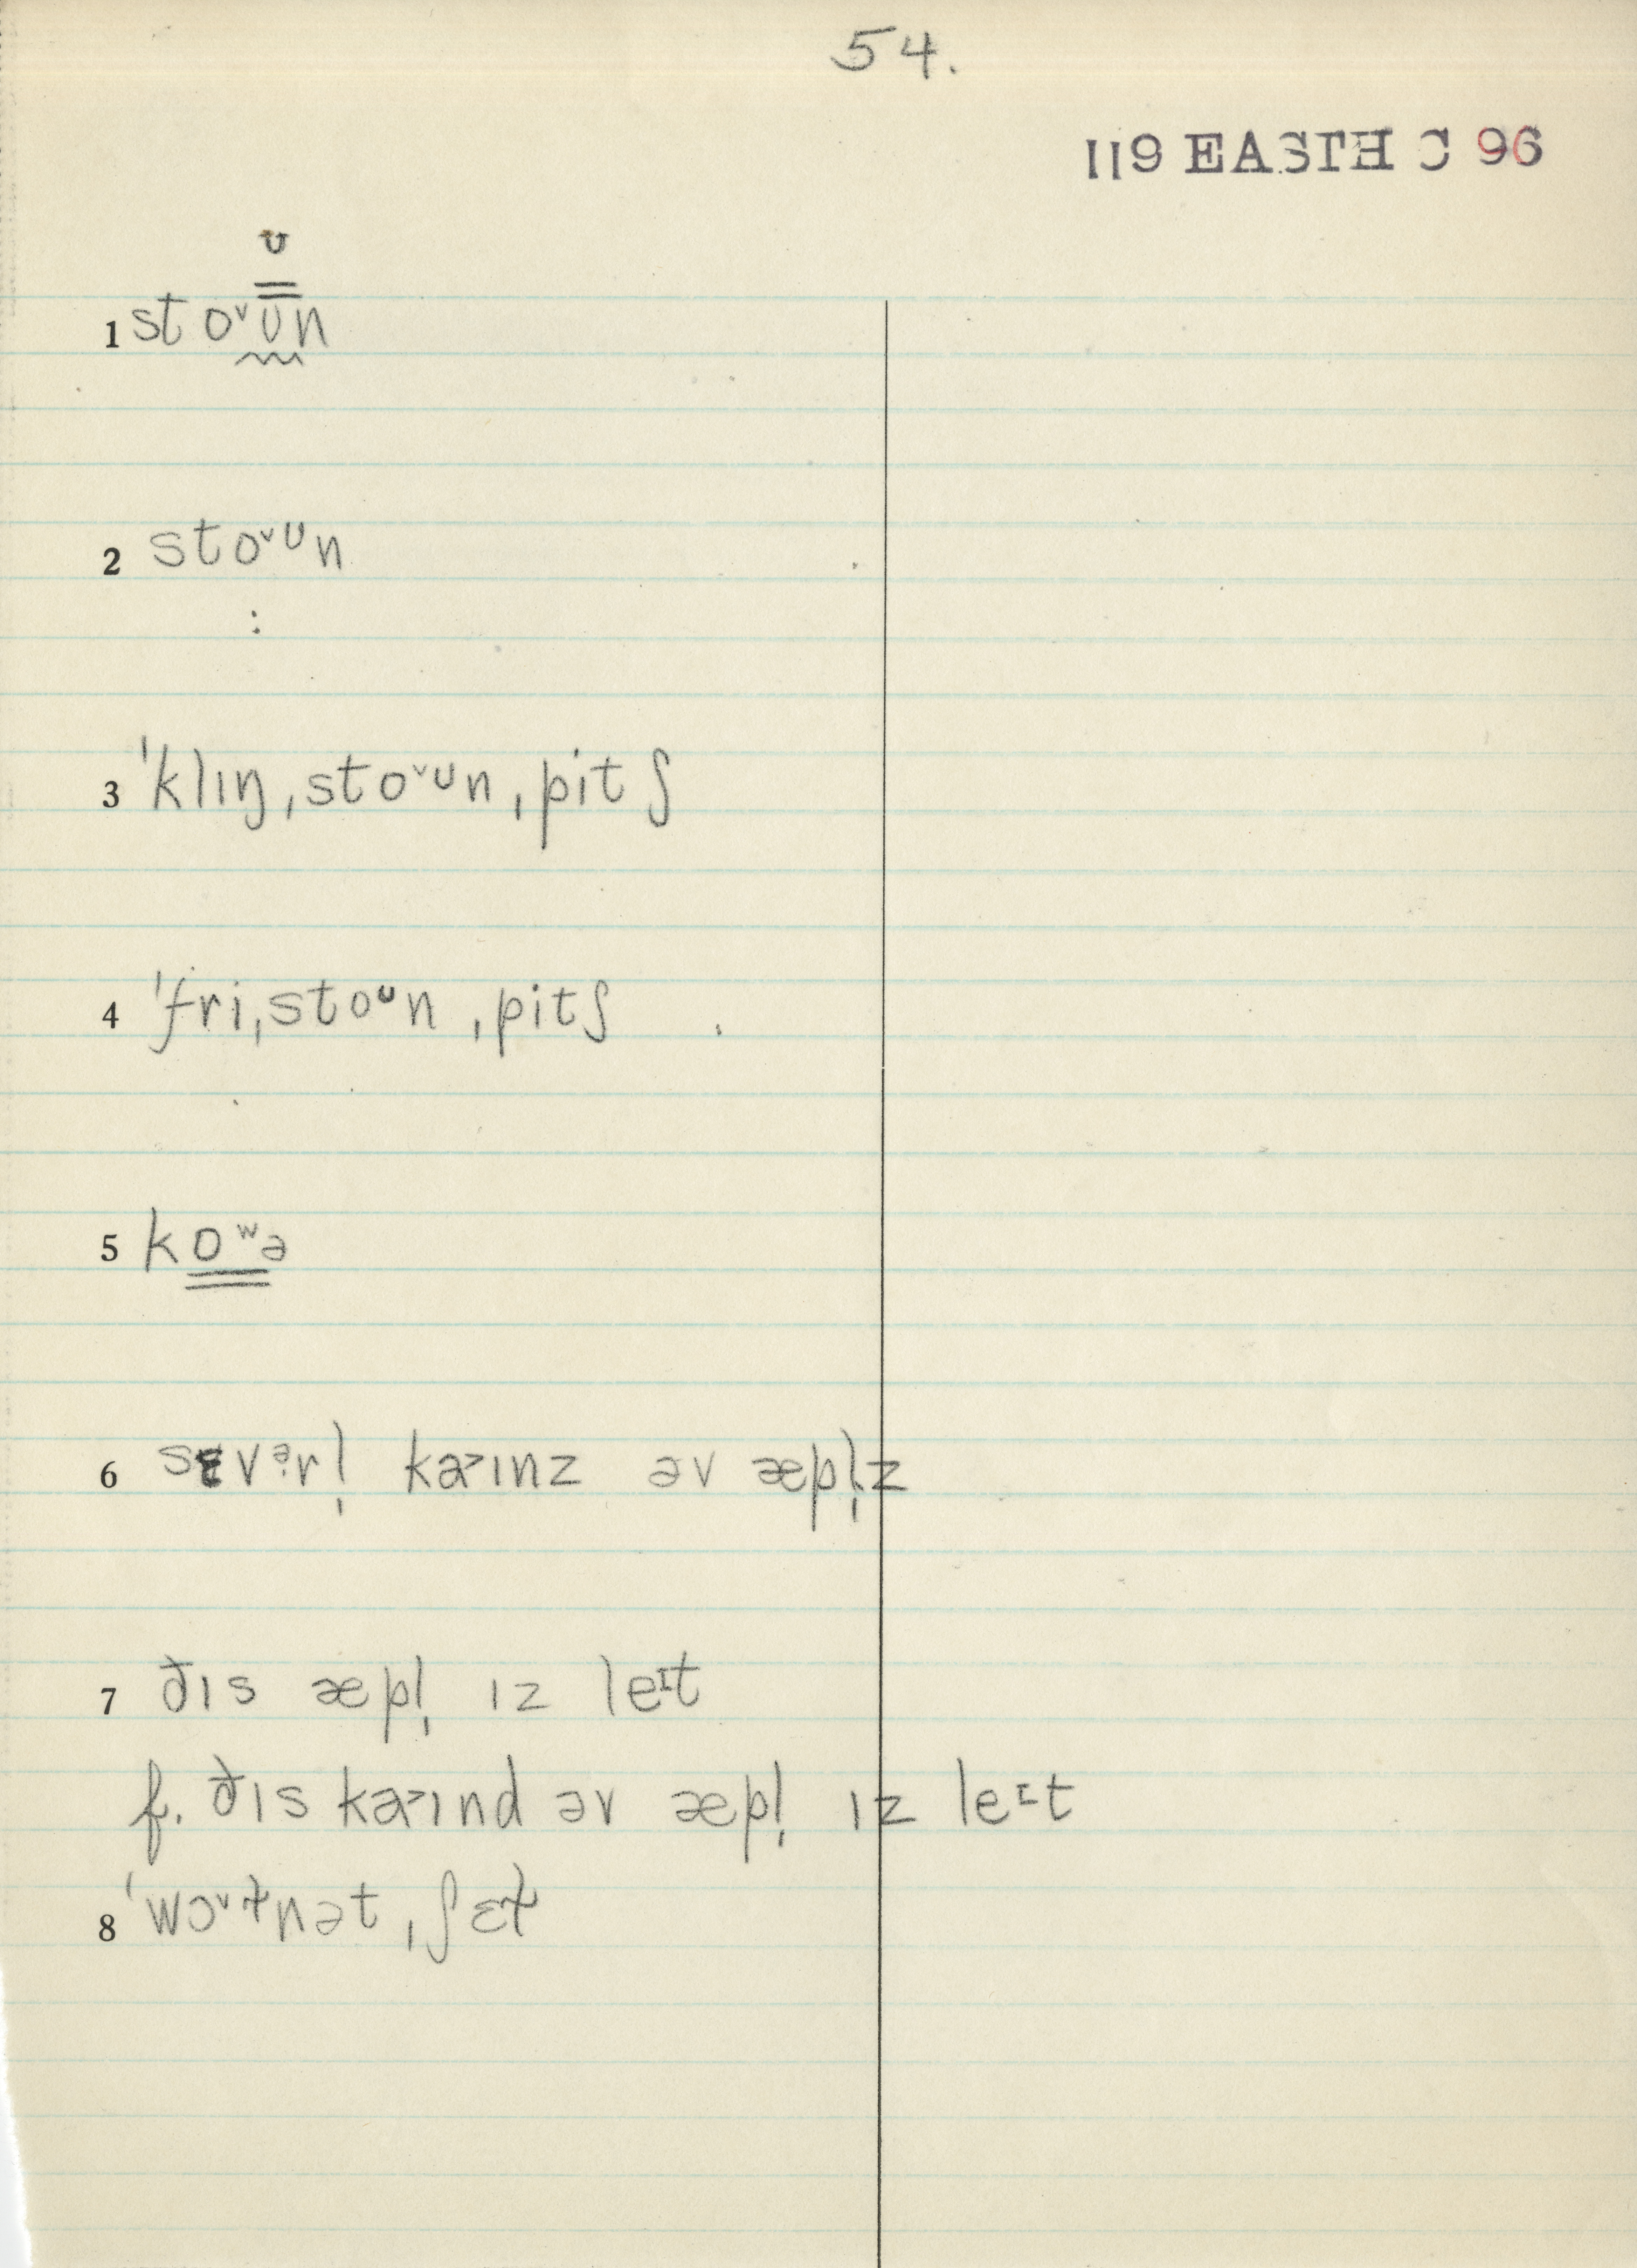 54.
119 EASTH C 96
ᴜ
1 stoᵛᴜn
2 stoᵛᶸn
:
3 ˈklɪŋˌstoᵛᶸnˌpitʃ
4 ˈfriˌstoᶸnˌpitʃ
5 koʷə
6 sɛvᵊrl̩ kaᵞɪnz əv æpl̩z
7 ðɪs æpl̩ ɪz leᶦt
f. ðɪs kaᵞɪnd əv æpl̩ ɪz leᶦt
8 ˈwɔᵛɫnətˌʃɛɫ